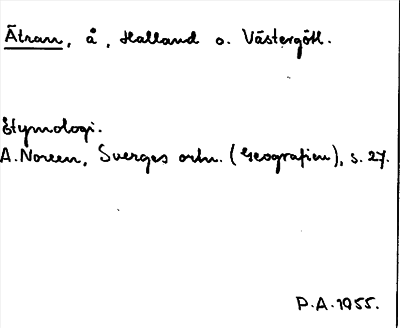 Ätran, å, Halland o. Västergötl.
Etymologi.
A. Noreen, Sverges ortn. (Geografien), s. 27.
P.A. 1955.